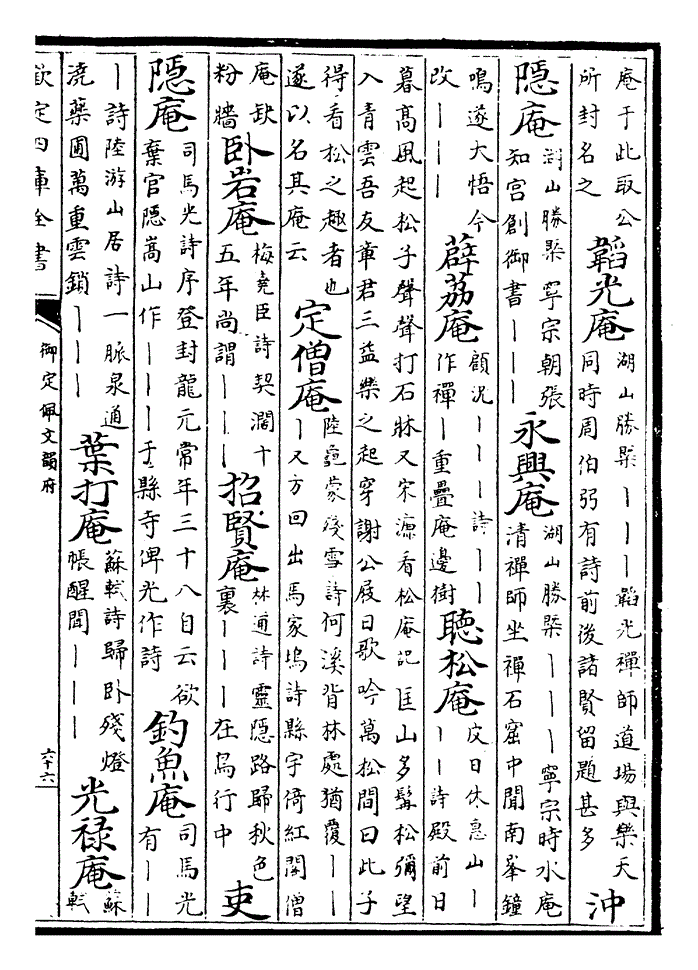 庵于此取公
所封名之
韜光庵
湖山勝槩｜｜｜韜光禪師道場與樂天
同時周伯弜有詩前後諸賢留題甚多
沖
隱庵
湖山勝槩寧宗朝張
知宫創御書｜｜
永興庵
湖山勝槩｜｜｜寧宗時水庵
清禪師坐禪石窟中聞南峯鐘
鳴遂大悟今
改｜｜｜
薜荔庵
顧况｜｜｜詩｜｜
作禪｜重疊庵邊樹
聽松庵
皮日休惠山｜
｜｜詩殿前日
暮高風起松子聲聲打石牀又宋濂看松庵記匡山多髯松彌望
入青雲吾友章君三益樂之起穿謝公屐日歌吟萬松間曰此子
得看松之趣者也
遂以名其庵云
定僧庵
陸龜蒙殘雪詩何溪背林處猶覆｜｜
｜又方回出馬家塢詩縣宇倚紅閣僧
庵缺
粉牆
卧岩庵
梅堯臣詩契濶十
五年尚謂｜｜｜
招賢庵
林逋詩靈隱路歸秋色
裏｜｜｜在鳥行中
吏
隱庵
司馬光詩序登封龍元常年三十八自云欲
棄官隱嵩山作｜｜｜于縣寺俾光作詩
釣魚庵
司馬光
有｜｜
｜詩陸游山居詩一脈泉通
澆藥圃萬重雲鎖｜｜｜
葉打庵
蘇軾詩歸卧殘燈
帳醒聞｜｜｜
光禄庵
蘇
軾
欽定四庫全書
御定佩文韻府
六十六